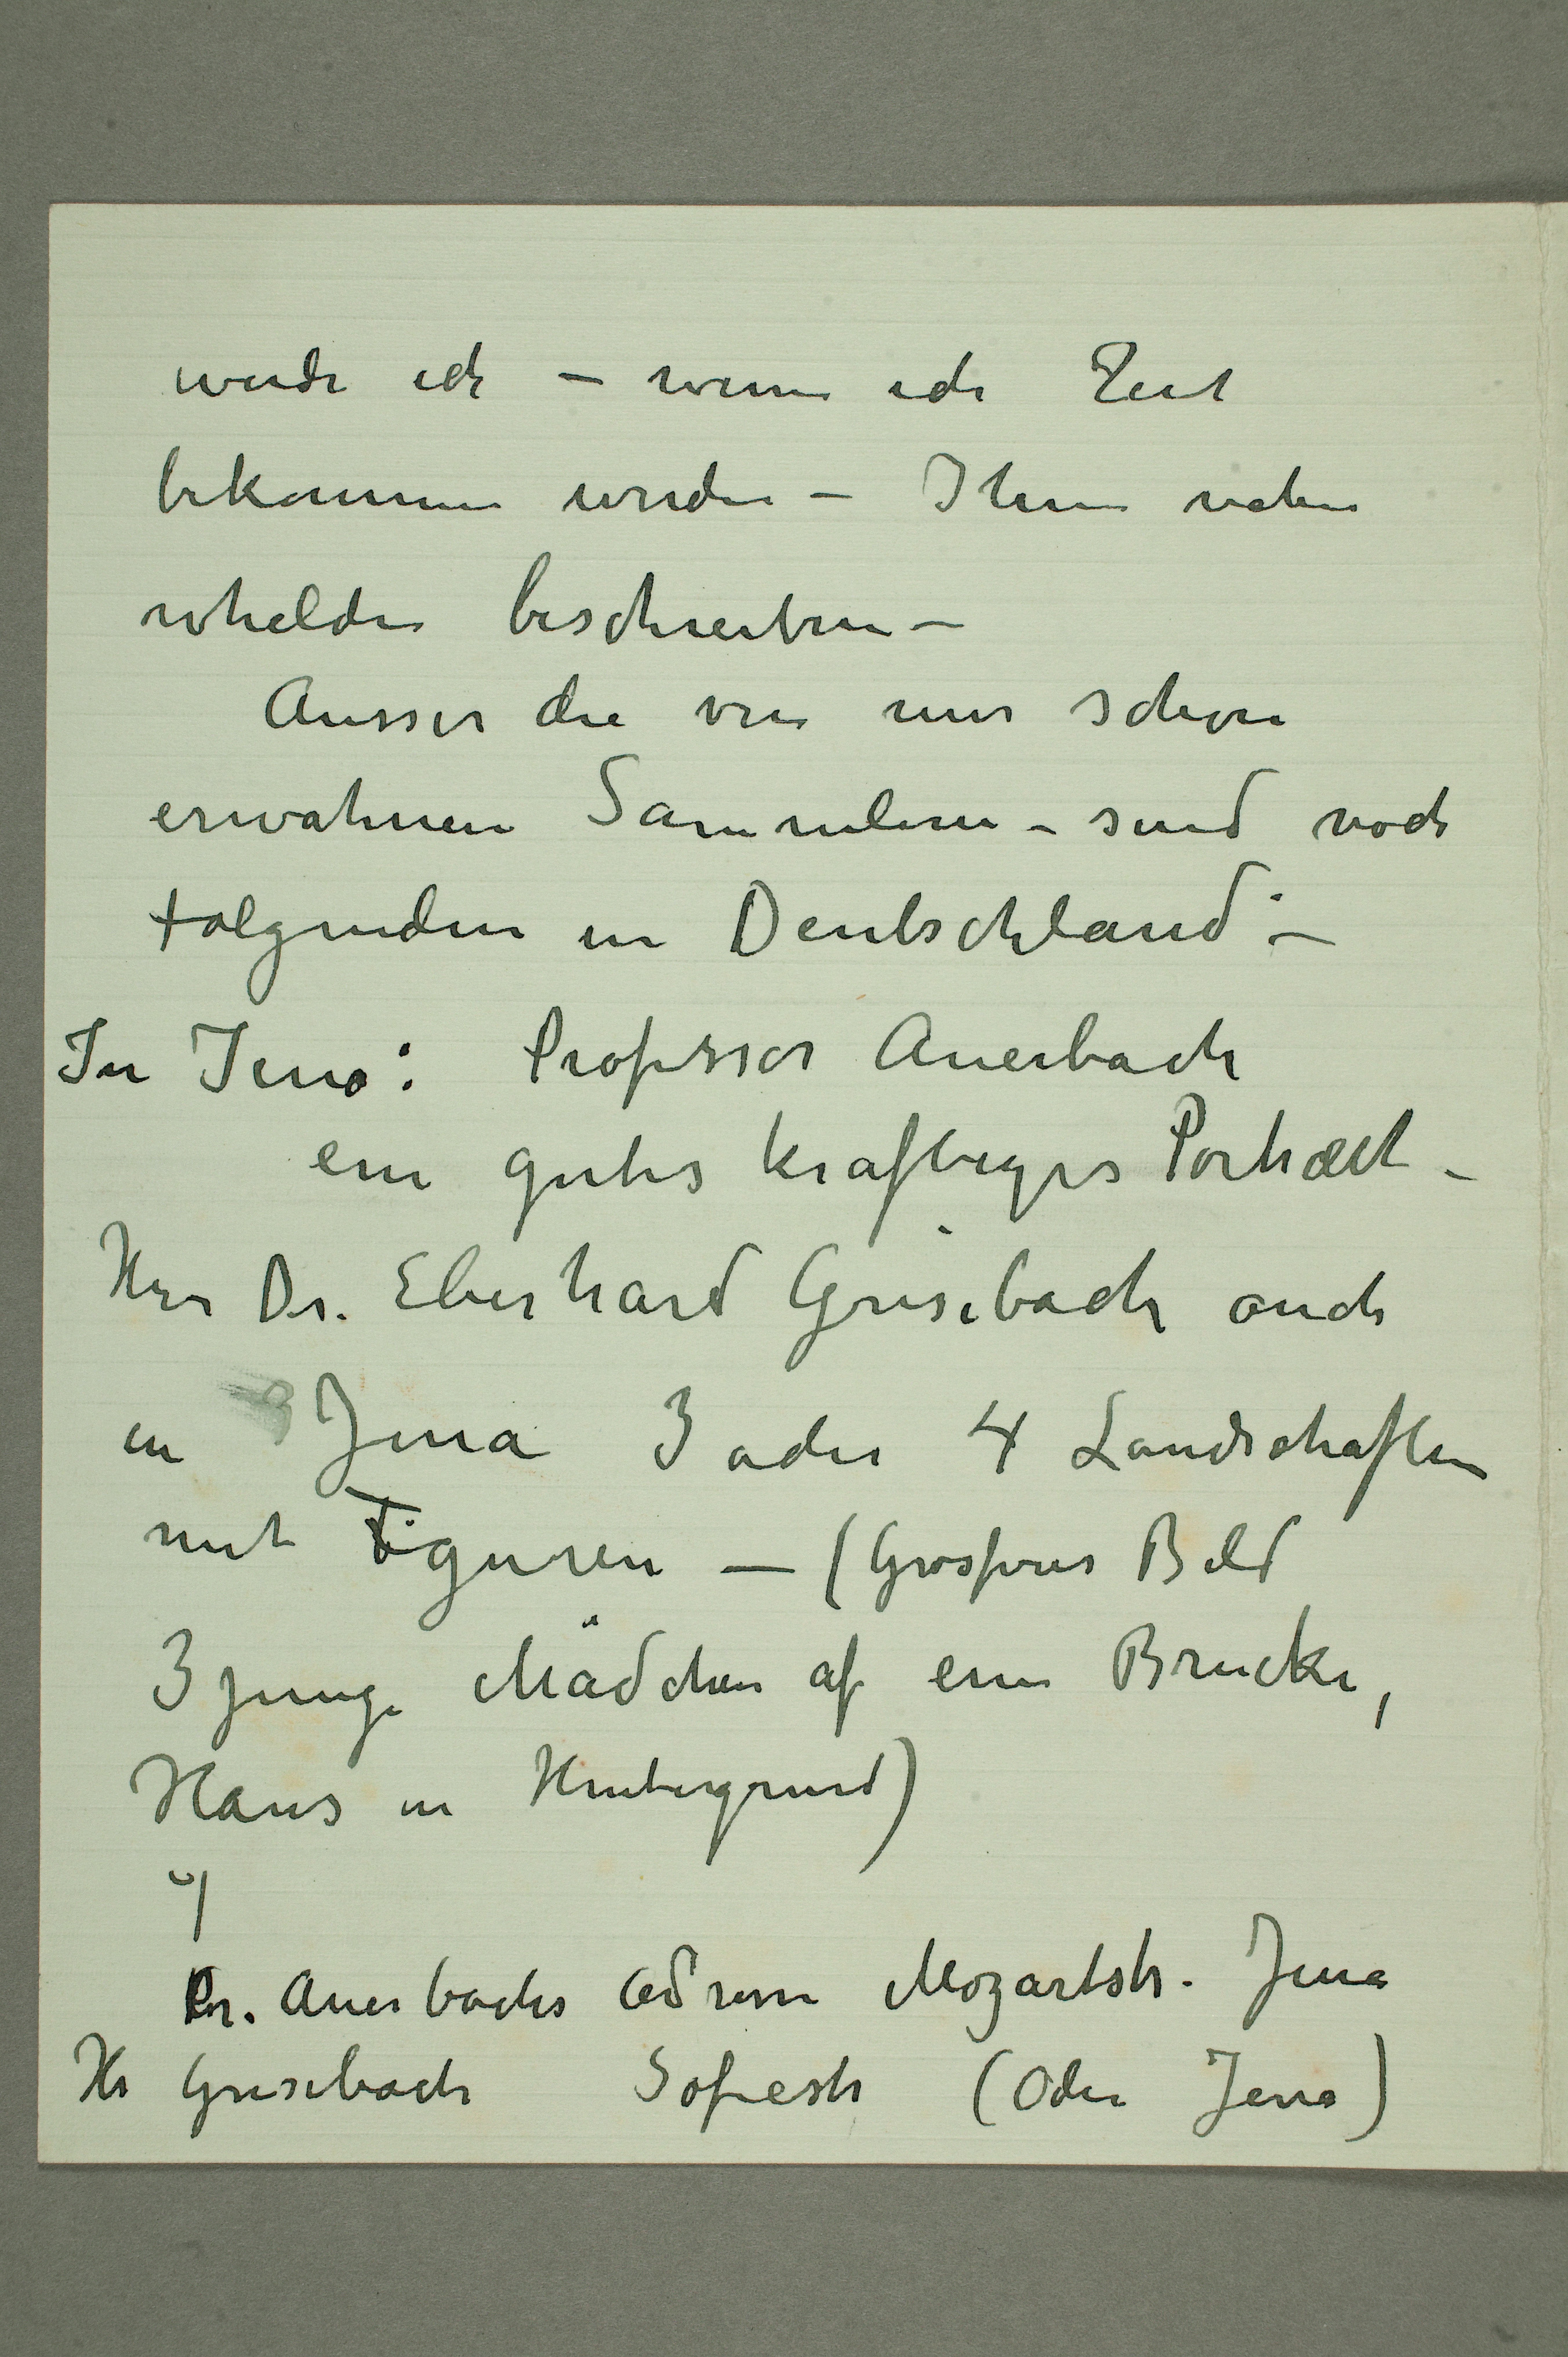 werde ich – wenn ich Zeit
bekommen werde – Ihnen
beschreiben –
Ausser die von mir schon
erwahnen Sammlern – sind noch
folgenden in Deutschland: –
In Jena: Professor Auerbach
ein gutes kraftiges Portrætt –
Herr Dr. Eberhard Grisebach auch
in Jena 3 oder 4 Landschaften
mit Figuren — (Grosses Bild
3 junge Mädchen af eine Brucke,
Haus in Hintergrund)
Pr. Auerbachs Adresse Mozartstr. Jena
Hr Grisebach Sofiestr (Oder Jena)